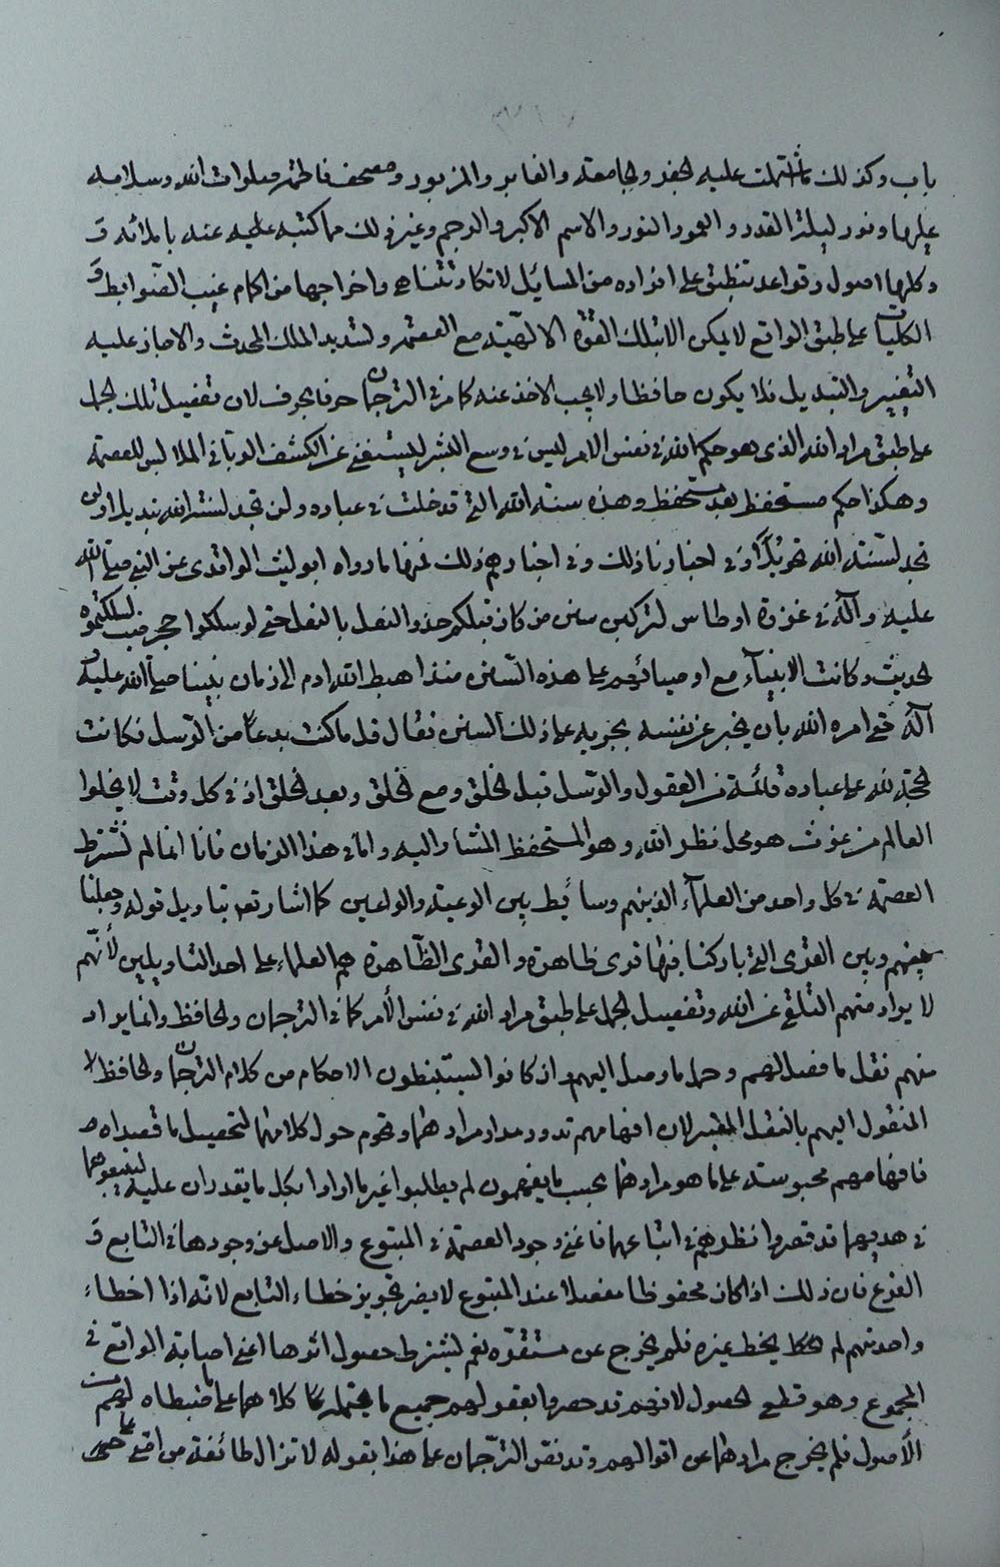 باب وكذلك ما اشتملت عليه الجفر والجامعة والغابر والمزبور ومصحف فاطمة صلوات الله وسلامه
عليها ونور ليلة القدر والعمود النور والاسم الاكبر والرجم وغير ذلك مما كتبه عليه عنه باملائه و
وكلها اصول وقواعد تنطبق على افراده من المسائل لا تكاد تتناهى واخراجها من اكمام غيب الضوابط و
الكليات على طبق الواقع لا يمكن الا بتلك القوة الالهية مع العصمة وتسديد الملك المحدث والا جاز عليه
التغيير والتبديل فلا يكون حافظا ولا يجب الاخذ عنه كما في الترجمان حرفا بحرف لان تفصيل تلك الجمل
على طبق مراد الله الذي هو حكم الله في نفس الامر ليس في وسع البشر ليستغني عن الكشف الرباني الملابس للعصمة
وهكذا حكم مستحفظ بعد مستحفظ وهذه سنة الله التي قد خلت في عباده ولن تجد لسنة الله تبديلا ولن
تجد لسنة الله تحويلا وفي اخبارنا ذلك وفي اخبارهم ذلك فمنها ما رواه ابو ليث الواقدي عن النبي صلى الله
عليه وآله في غزوة اوطاس لتركبن سنن من كان قبلكم حذو النعل بالنعل حتى لو سلكوا جحر ضب لسلكتموه
الحديث وكانت الانبياء مع اوصيائهم على هذه السنن منذ اهبط الله ادم الى زمان نبينا صلى الله عليه و
آله حتى امره الله بأن يخبر عن نفسه بجريه على ذلك السنن فقال قل ما كنت بدعا من الرسل فكانت
الحجة لله على عباده قائمة من العقول والرسل قبل الخلق ومع الخلق وبعد الخلق اذ في كل وقت لا يخلوا
العالم من غوث هو محل نظر الله وهو المستحفظ المشار اليه واما في هذا الزمان فانا انما لم نشترط
العصمة في كل واحد من العلماء الذينهم وسائط بين الرعية والراعي كما اشار تعم بتاويل قوله وجعلنا
بينهم وبين القرى التي باركنا فيها قرى ظاهرة والقرى الظاهرة هم العلماء على احد التاويلين لأنهم
لا يراد منهم التلقي عن الله وتفصيل الجمل على طبق مراد الله في نفس الأمر كما في الترجمان والحافظ وانما يراد
منهم نقل ما فصل لهم وحمل ما وصل اليهم واذ كانوا ليستنبطون الاحكام من كلام الترجمان والحافظ
المنقول اليهم بالنقل لان افهامهم تدور مدار مرادهما وتحوم حول كلامهما لتحصيل ما قصداه
فافهامهم محبوسة على ما هو مرادهما بحسب ما يفهمون لم يطلبوا غير ما ارادا بكل ما يقدران عليه ليتبعوهما
في هديهما قد قصروا نظرهم في اتباعهما فاغنى وجود العصمة في المتبوع والاصل عن وجودها في التابع و
الفرع فان ذلك اذا كان محفوظا مفصلا عند المتبوع لا يضر تجويز خطاء التابع لانه اذا اخطاء
واحد منهم لم يخط غيره فلم يخرج عن مستقره نعم ليشترط حصول اثرها اعني اصابة الواقع في
المجموع وهو قطعي الحصول لانهم قد حصروا بعقولهم جميع ما يحتمله كلامهما على ما ضبطاه لهم من
الأصول فلم يخرج مرادهما عن اقوالهم وقد نص الترجمان على هذا بقوله لا تزال طائفة من امتي على الحق